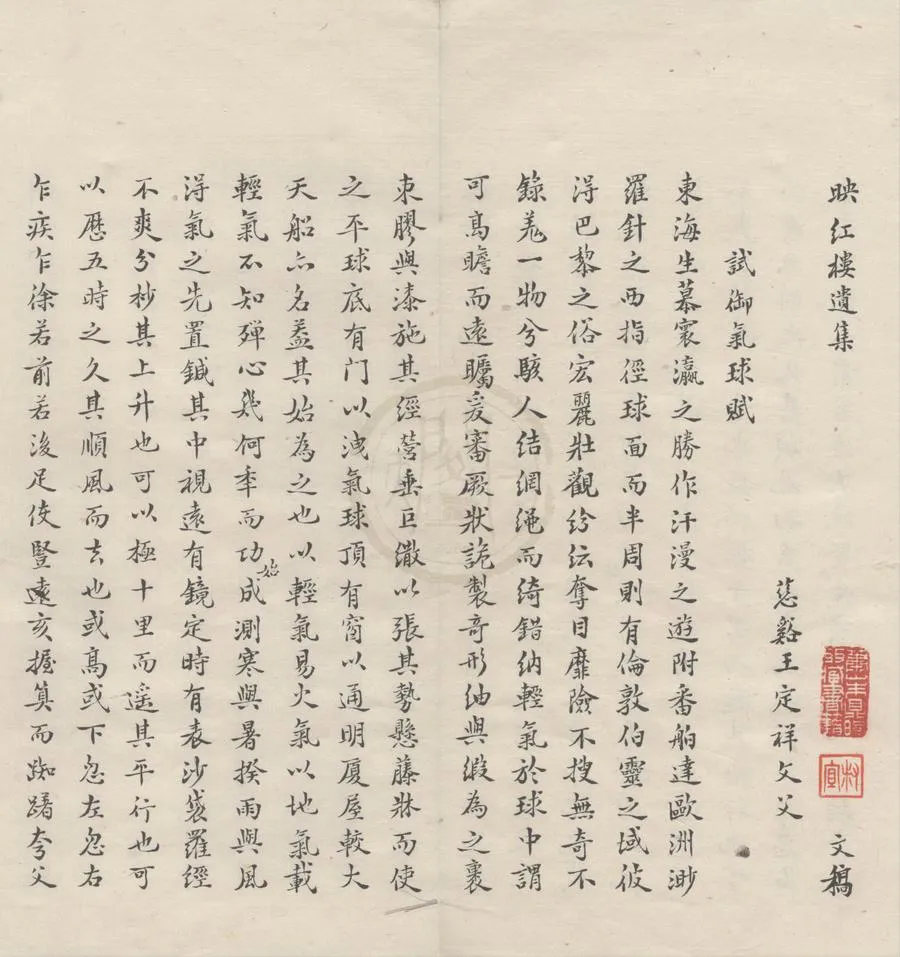 映红樓遺集 文稿
慈谿王定祥文父
試御氣球賦
東海生慕寰瀛之勝作汗漫之遊附番舶達歐洲渺
羅針之西指徑球面而半周則有倫敦伯靈之域彼
得巴黎之俗宏麗壯觀紛紜奪目靡險不搜無奇不
錄羗一物兮駭人结網绳而綺錯纳輕氣於球中謂
可髙瞻而遠矚爰審厥狀詭製奇形紬與緞為之裹
朿膠與漆施其經营垂巨繖以張其勢懸藤牀而使
之平球底有门以洩氣球頂有窗以通明厦屋較大
天船亦名葢其始為之也以輕氣易火氣以地氣載
輕氣不知殫心幾何年而功始成測寒與暑揆雨與風
得氣之先置鍼其中視遠有鏡定時有表沙袋羅經
不爽分杪其上升也可以極十里而遥其平行也可
以歷五時之久其順風而去也或髙或下忽左忽右
乍疾乍徐若前若後足使豎亥握筭而踟躇夸父